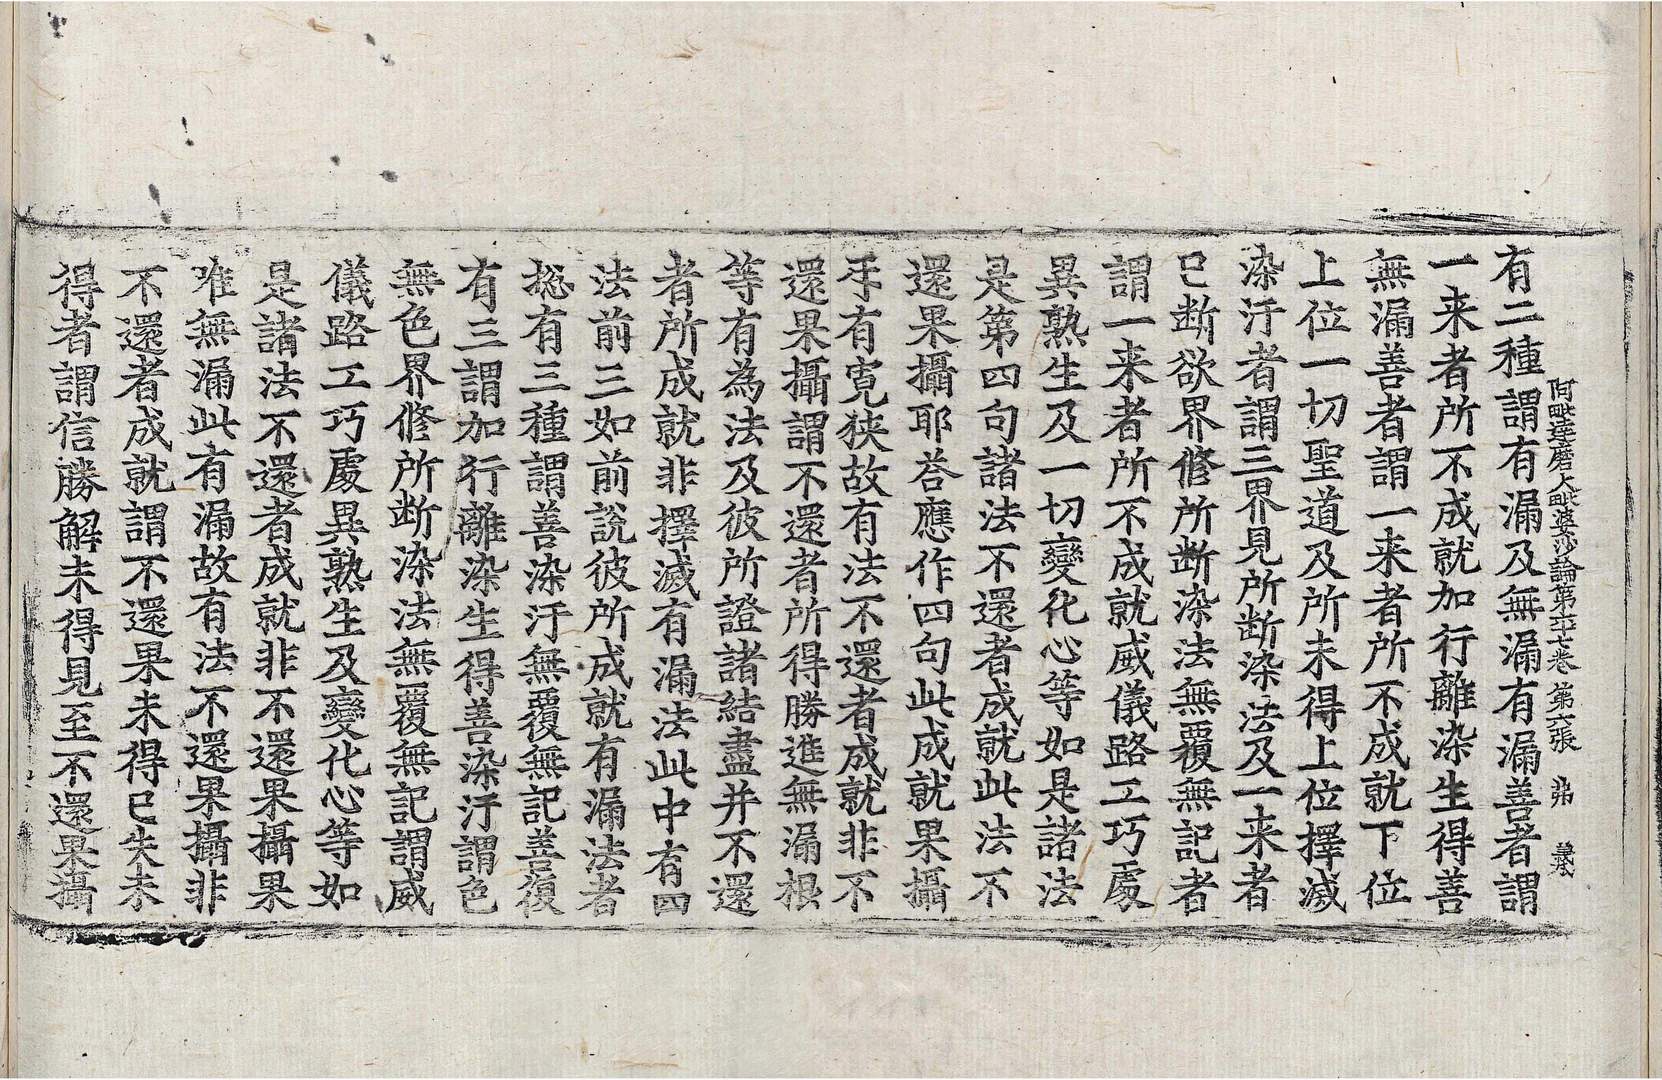 阿毗達磨大毗婆沙論第六十七卷 第六張 弟
有二種謂有漏及無漏有漏善者謂
一来者所不成就加行離染生得善
無漏善者謂一来者所不成就下位
上位一切聖道及所未得上位擇滅
染汙者謂三界見所断染法及一来者
已断欲界修所断染法無覆無記者
謂一来者所不成就威儀路工巧處
異熟生及一切變化心等如是諸法
是第四句諸法不還者成就此法不
還果攝耶荅應作四句此成就果攝
手有寬狹故有法不還者成就非不
還果攝謂不還者所得勝進無漏根
等有為法及彼所證諸結盡并不還
者所成就非擇滅有漏法此中有四
法前三如前說彼所成就有漏法者
捴有三種謂善染汙無覆無記善復
有三謂加行離染生得善染汙謂色
無色界修所断染法無覆無記謂威
儀路工巧處異熟生及變化心等如
是諸法不還者成就非不還果攝果
唯無漏此有漏故有法不還果攝非
不還者成就謂不還果未得已失未
得者謂信勝解未得見至不還果攝